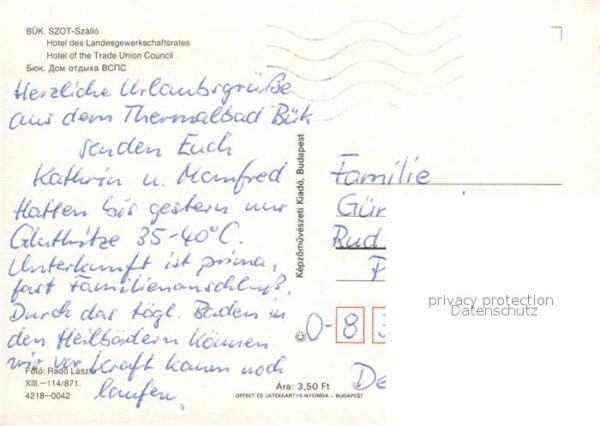 BÜK. SZOT-Szálló
Hotel des Landesgewerkschaftsrates
Hotel of the Trade Union Council
Бюк. Дом отдыха ВСПС
Herzliche Urlaubsgrüße
aus dem Thermalbad Bük
senden Euch
Kathrin u. Manfred
Hatten bis gestern nur
Gluthitze 35-40°C.
Unterkunft ist prima,
fast Familienanschluß.
Durch das tägl. Baden in
den Heilbädern können
wir vor Kraft kaum noch
laufen.
Fotó: Radó László
XIII.—114/871.
4218-0042
Képzőművészeti Kiadó, Budapest
©
Ára: 3,50 Ft
OFFSET ÉS JÁTÉKKÁRTYA NYOMDA – BUDAPEST
Familie
Gür
Rud
O-8
De
privacy protection
Datenschutz